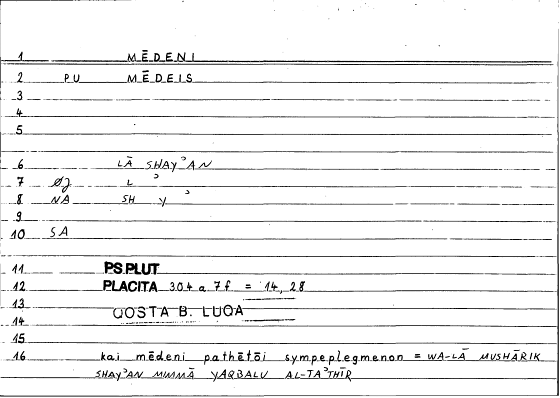 1 MĒDENI
2 PU MĒDEIS
3
4
5
6 LĀ SHAYʾAN
7 ØJ L ʾ
8 NA SH Y ʾ
9
10 SA
11 PS PLUT
12 PLACITA 304 a 7 f. = 14, 28
13
QOSTA B. LUQA
14
15
16 kai mēdeni pathētōi sympeplegmenon = WA-LĀ MUSHĀRIK
SHAYʾAN MIMMĀ YAQBALU AL-TAʾTHĪR